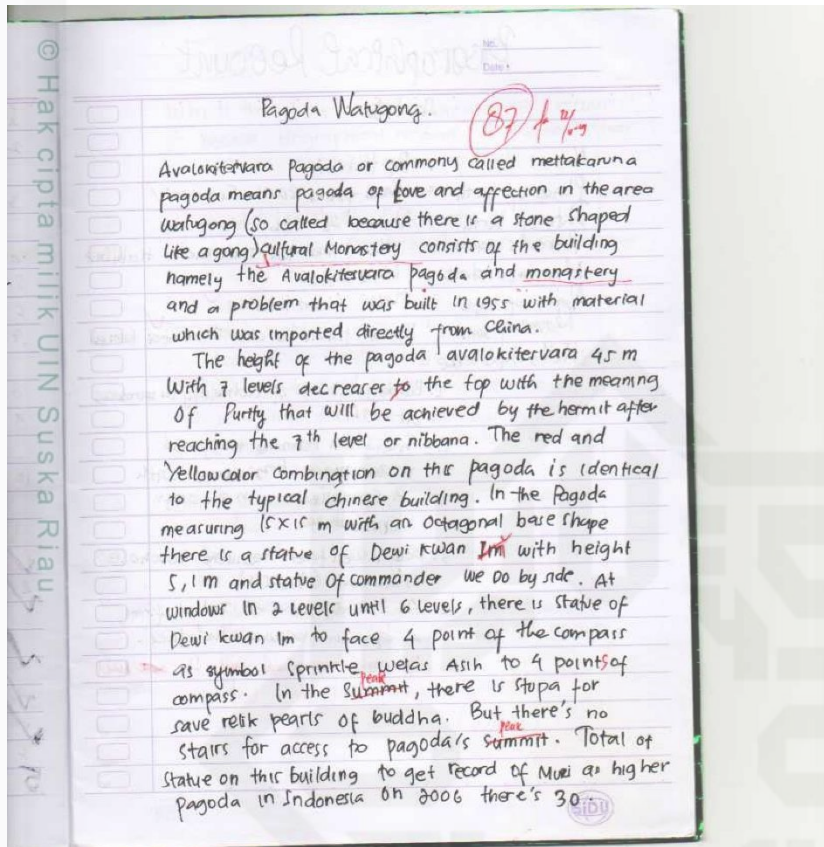 © Hak cipta milik UIN Suska Riau
No.
Date
Pagoda Watugong.
87
Avalokitervara Pagoda or commony called mettakaruna
pagoda means pagoda of Love and affection in the area
watugong (so called because there is a stone shaped
like a gong) cultural Monastery consists of the building
namely the Avalokitervara pagoda and monastery
and a problem that was built in 1955 with material
which was imported directly from China.
The height of the pagoda avalokitervara 45 m
With 7 levels decreases to the top with the meaning
Of Purity that will be achieved by the hermit after
reaching the 7th level or nibbana. The red and
Yellow color combination on this pagoda is identical
to the typical chinese building. In the Pagoda
measuring 15 x 15 m with an octagonal base shape
there is a statue of Dewi Kwan Im with height
5,1 m and statue Of commander we Do by side. At
windows in 2 levels until 6 levels, there is statue of
Dewi kwan Im to face 4 point of the compass
as symbol sprinkle welas Asih to 4 points of
peak
compass. In the summit, there is stupa for
save relik pearls of buddha. But there's no
peak
stairs for access to pagoda's summit. Total of
statue on this building to get record of Muri as higher
pagoda in Indonesia on 2006 there's 30.
SIDU